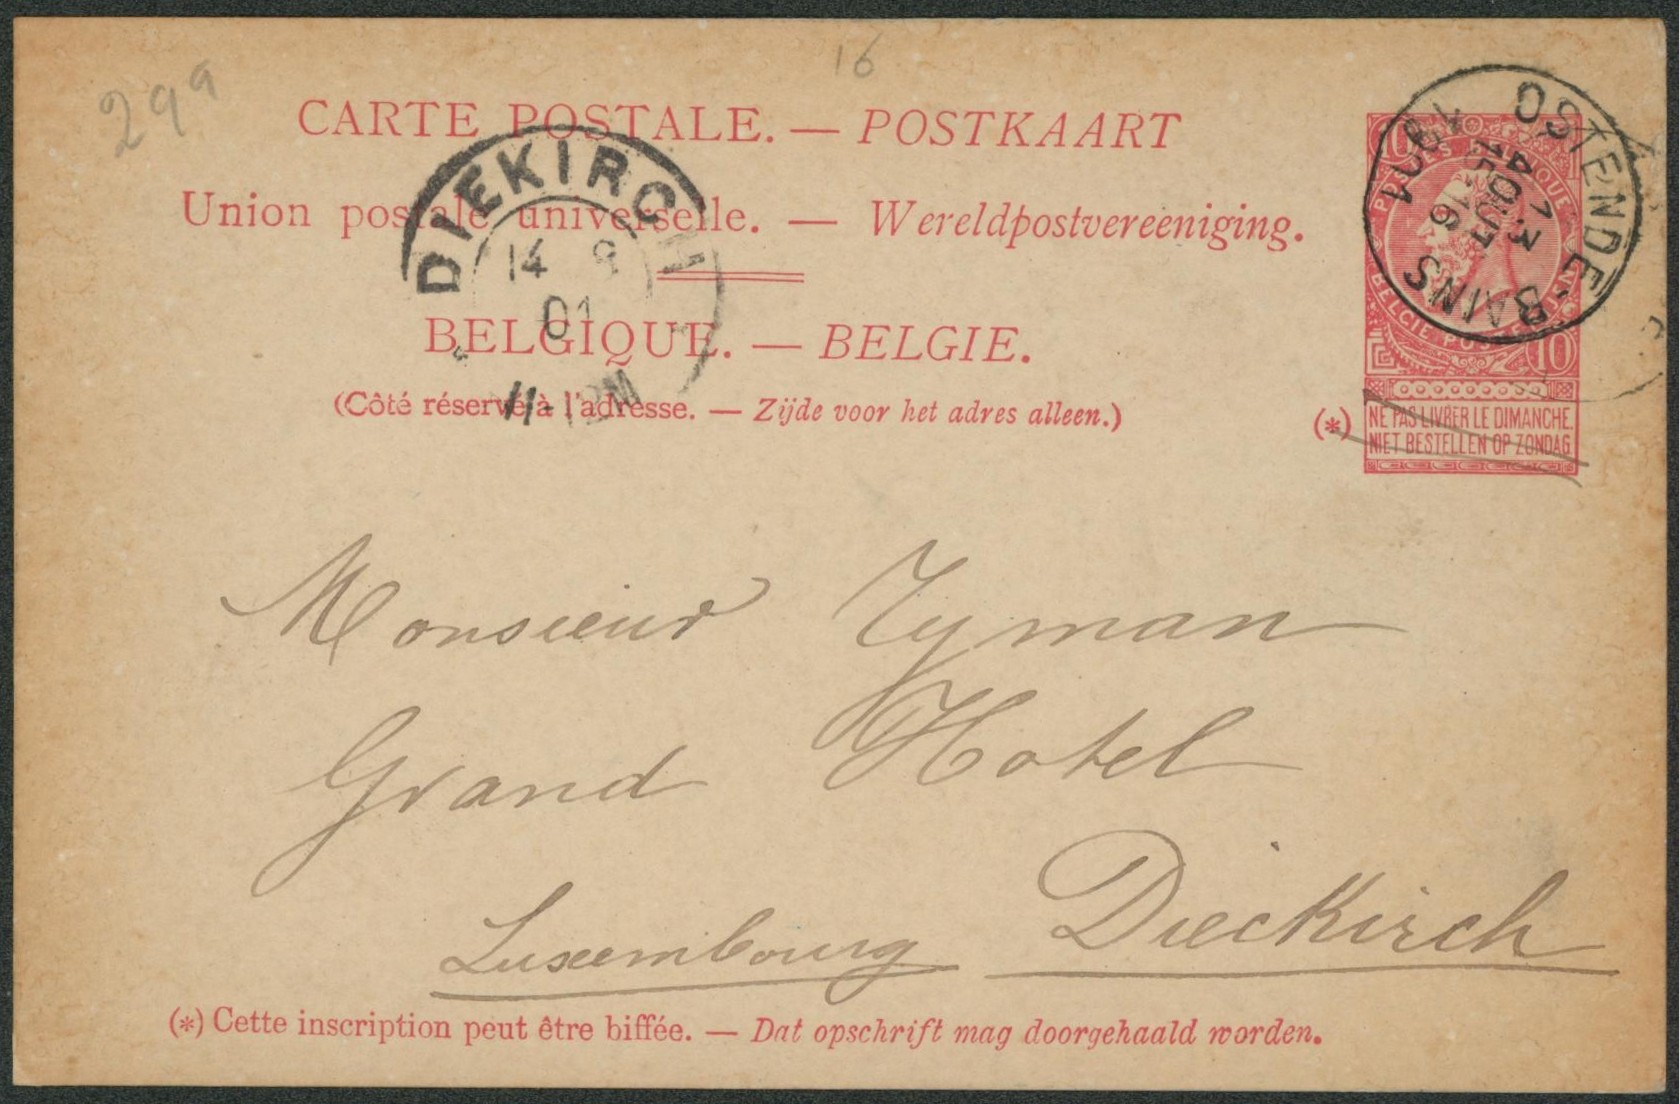 29a
16
CARTE POSTALE. — POSTKAART
Union postale universelle. — Wereldpostvereeniging.
BELGIQUE. — BELGIE.
(Côté réservé à l'adresse. — Zijde voor het adres alleen.)
DIEKIRCH
14 8
01
11-12M
OSTENDE-BAINS
13
AOUT
15-16
1901
POSTES BELGIQUE
BELGIE POSTERIJEN
10
10
(*)
NE PAS LIVRER LE DIMANCHE.
NIET BESTELLEN OP ZONDAG
Monsieur Tyman
Grand Hotel
Luxembourg Dieckirch
(*) Cette inscription peut être biffée. — Dat opschrift mag doorgehaald worden.